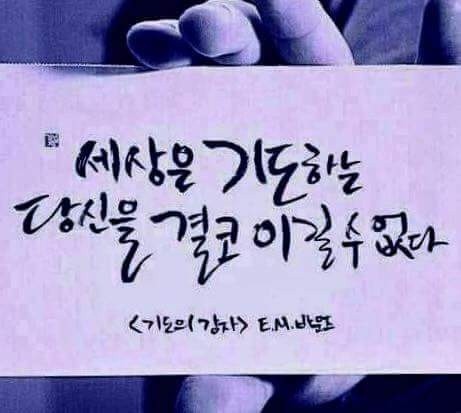 세상은 기도하는
당신을 결코 이길 수 없다
<기도의 강자> E.M.바운즈